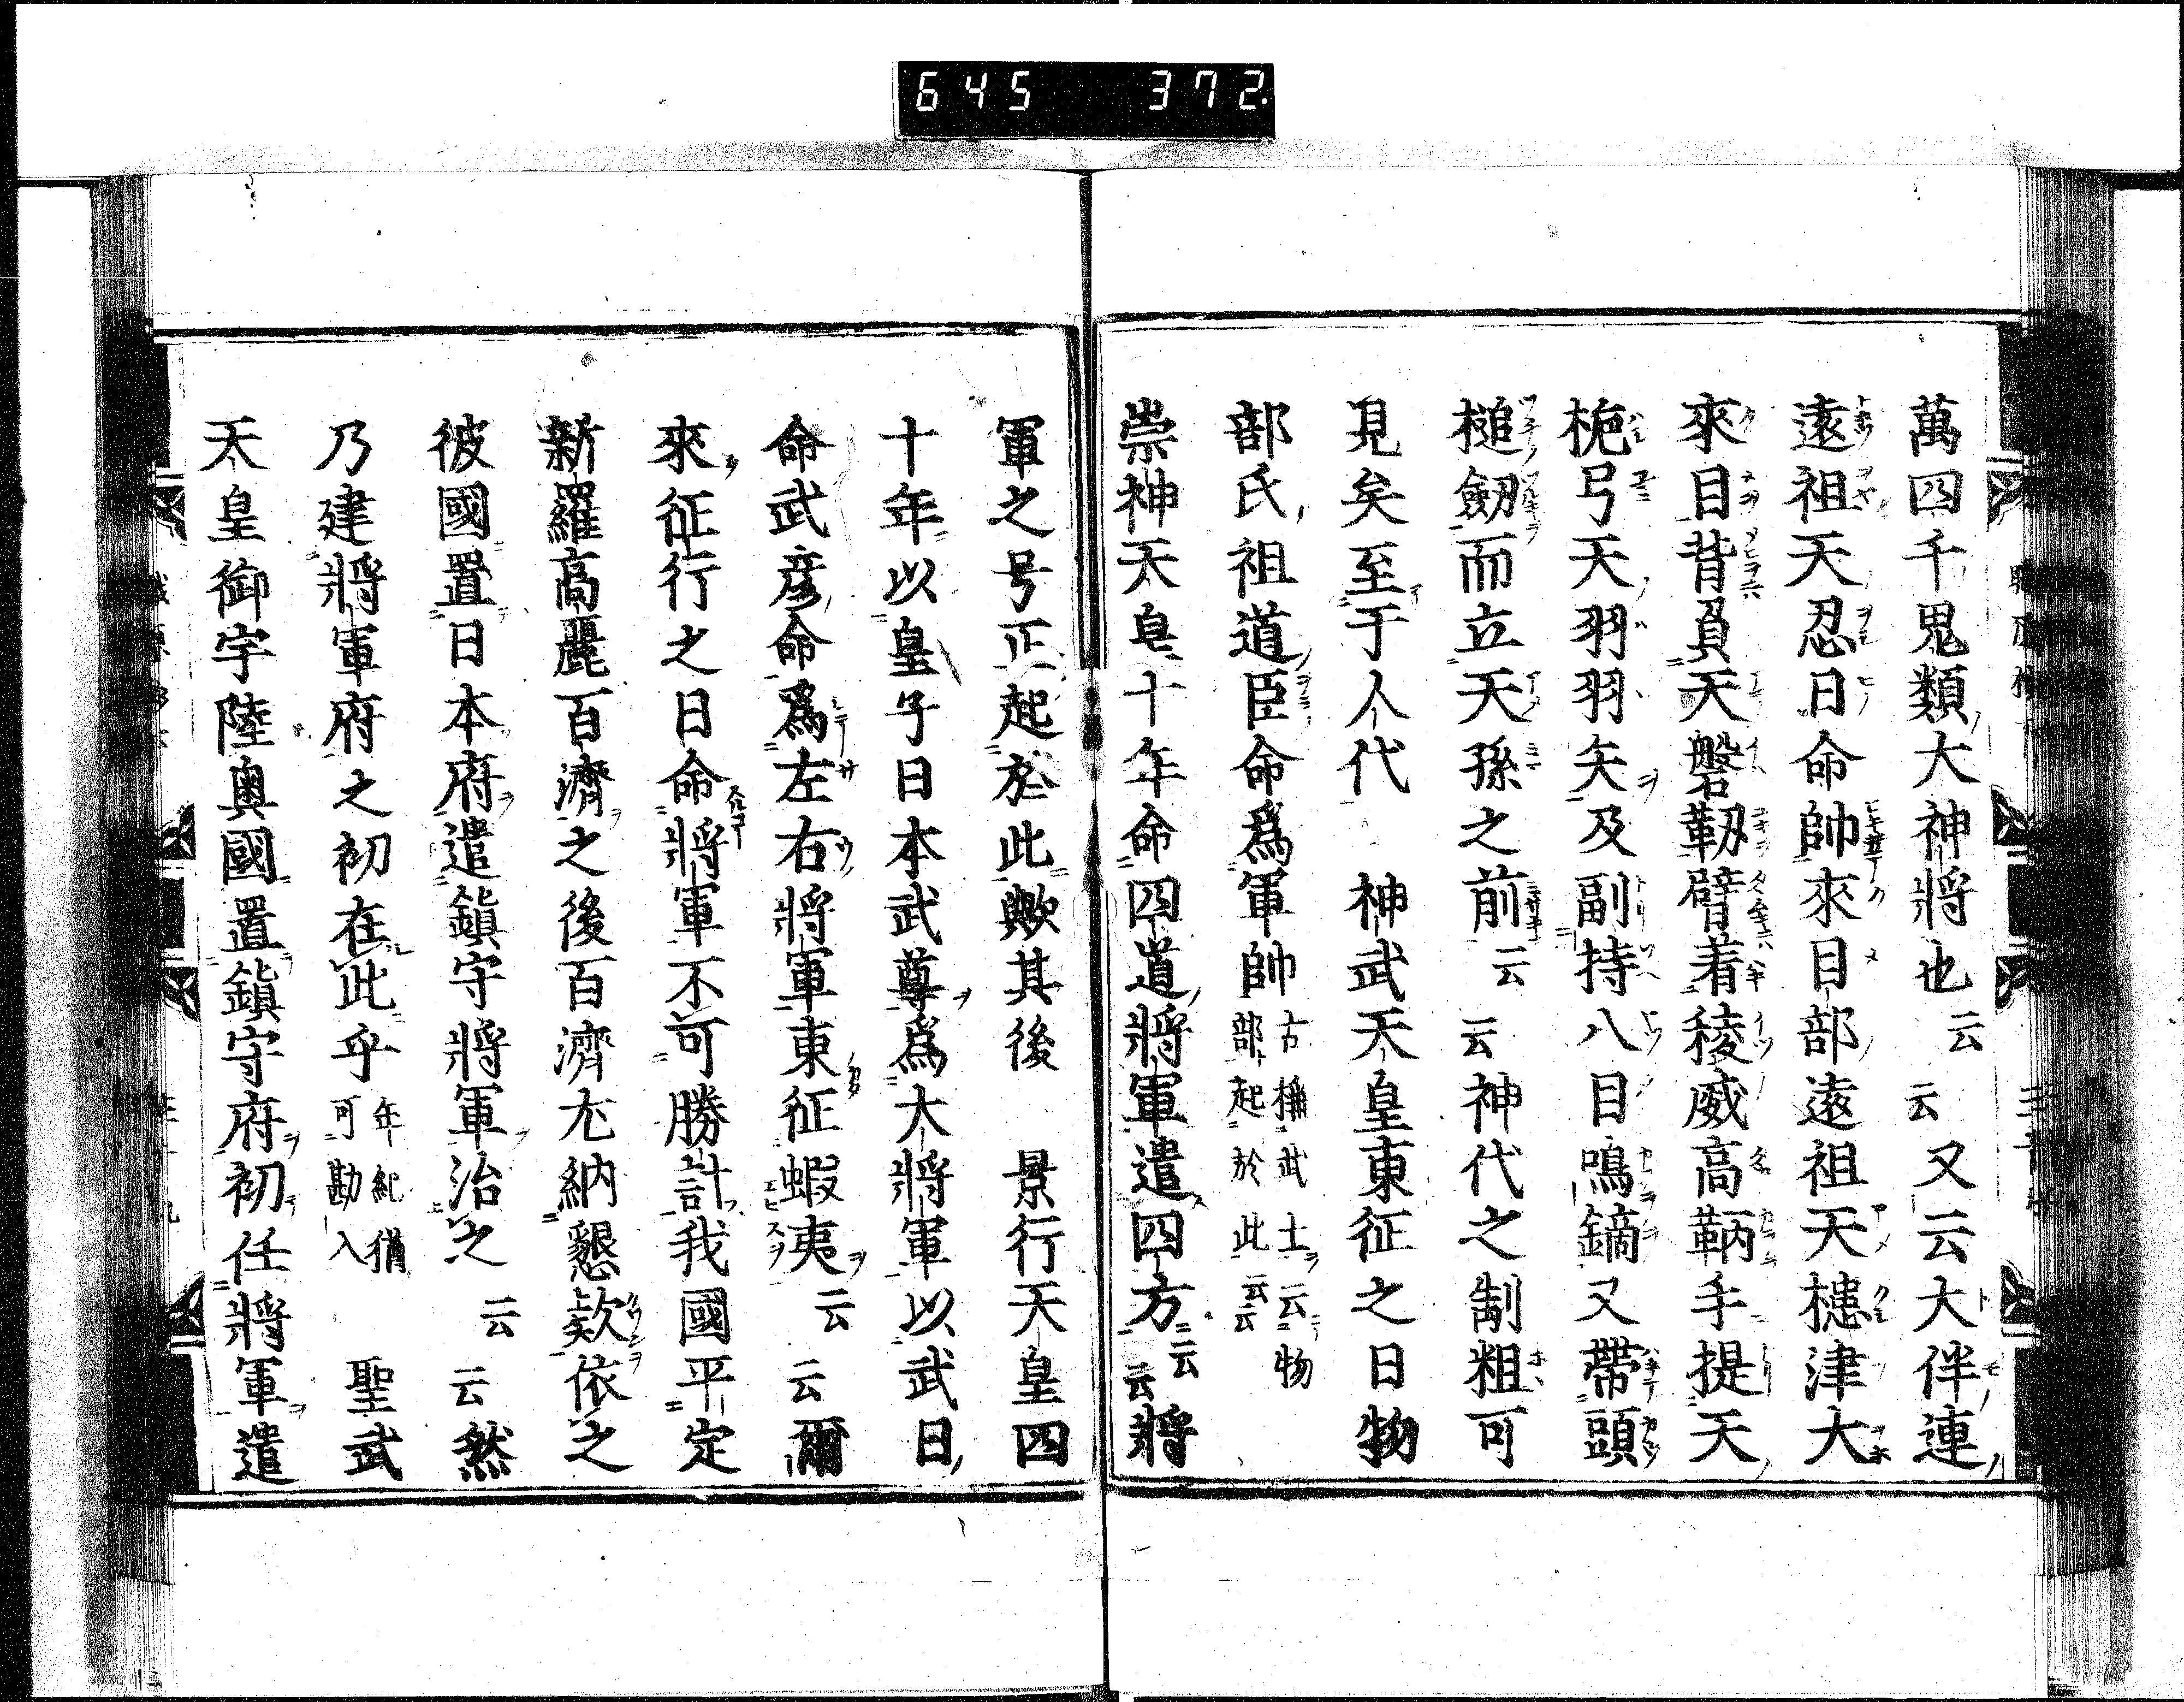 645 372.
萬四千鬼類大神將也云云又云大伴連
遠祖天忍日命帥來目部遠祖天槵津大
來目背負天磐靫臂着稜威高鞆手提天
梔弓天羽羽矢及副持八目鳴鏑又帶頭
槌劔而立天孫之前云云神代之制粗可
見矣至于人代　神武天皇東征之日物
部氏祖道臣命爲軍帥古搆武士云物部起於此云云
崇神天皇十年命四道將軍遣四方云云將
軍之号正起於此歟其後　景行天皇四
十年以皇子日本武尊爲大將軍以武日
命武彦命爲左右將軍東征蝦夷云云爾
來征行之日命將軍不可勝計我國平定
新羅高麗百濟之後百濟尢納懇欵依之
彼國置日本府遣鎭守將軍治之云云然
乃建將軍府之初在此乎年紀猶可勘入　聖武
天皇御宇陸奥國置鎭守府初任將軍遣